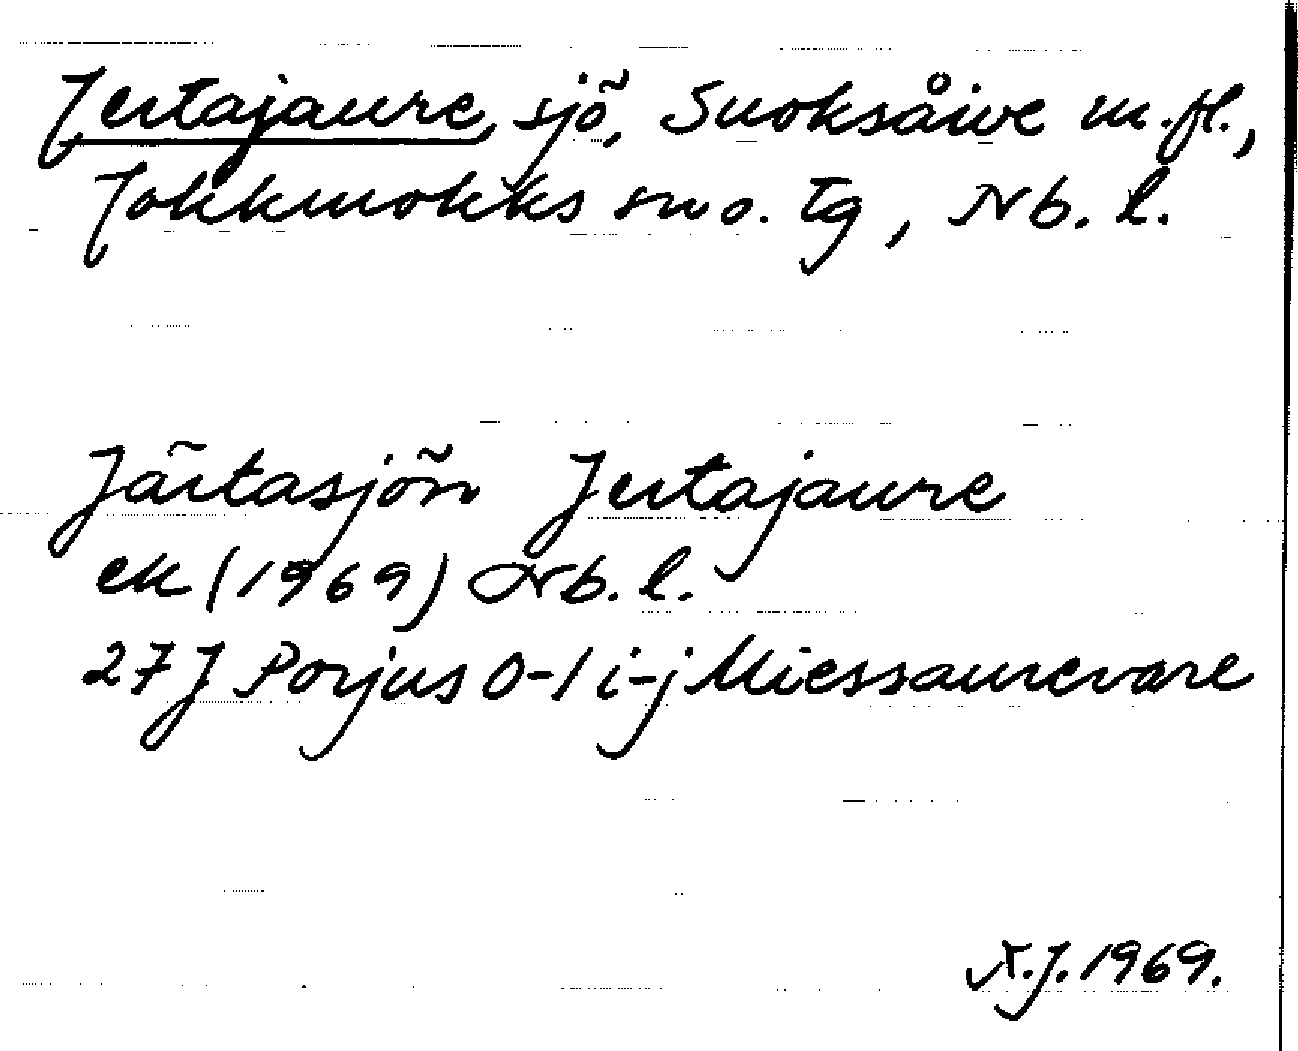 Jertajaure, sjö, Suoksåive m.fl.,
Jokkmokks sn o. tg, Nb. l.
Järtasjön Jertajaure
ek (1969) Nb. l.
27 J Porjus 0-1 i-j Miessaurevare
N.J. 1969.